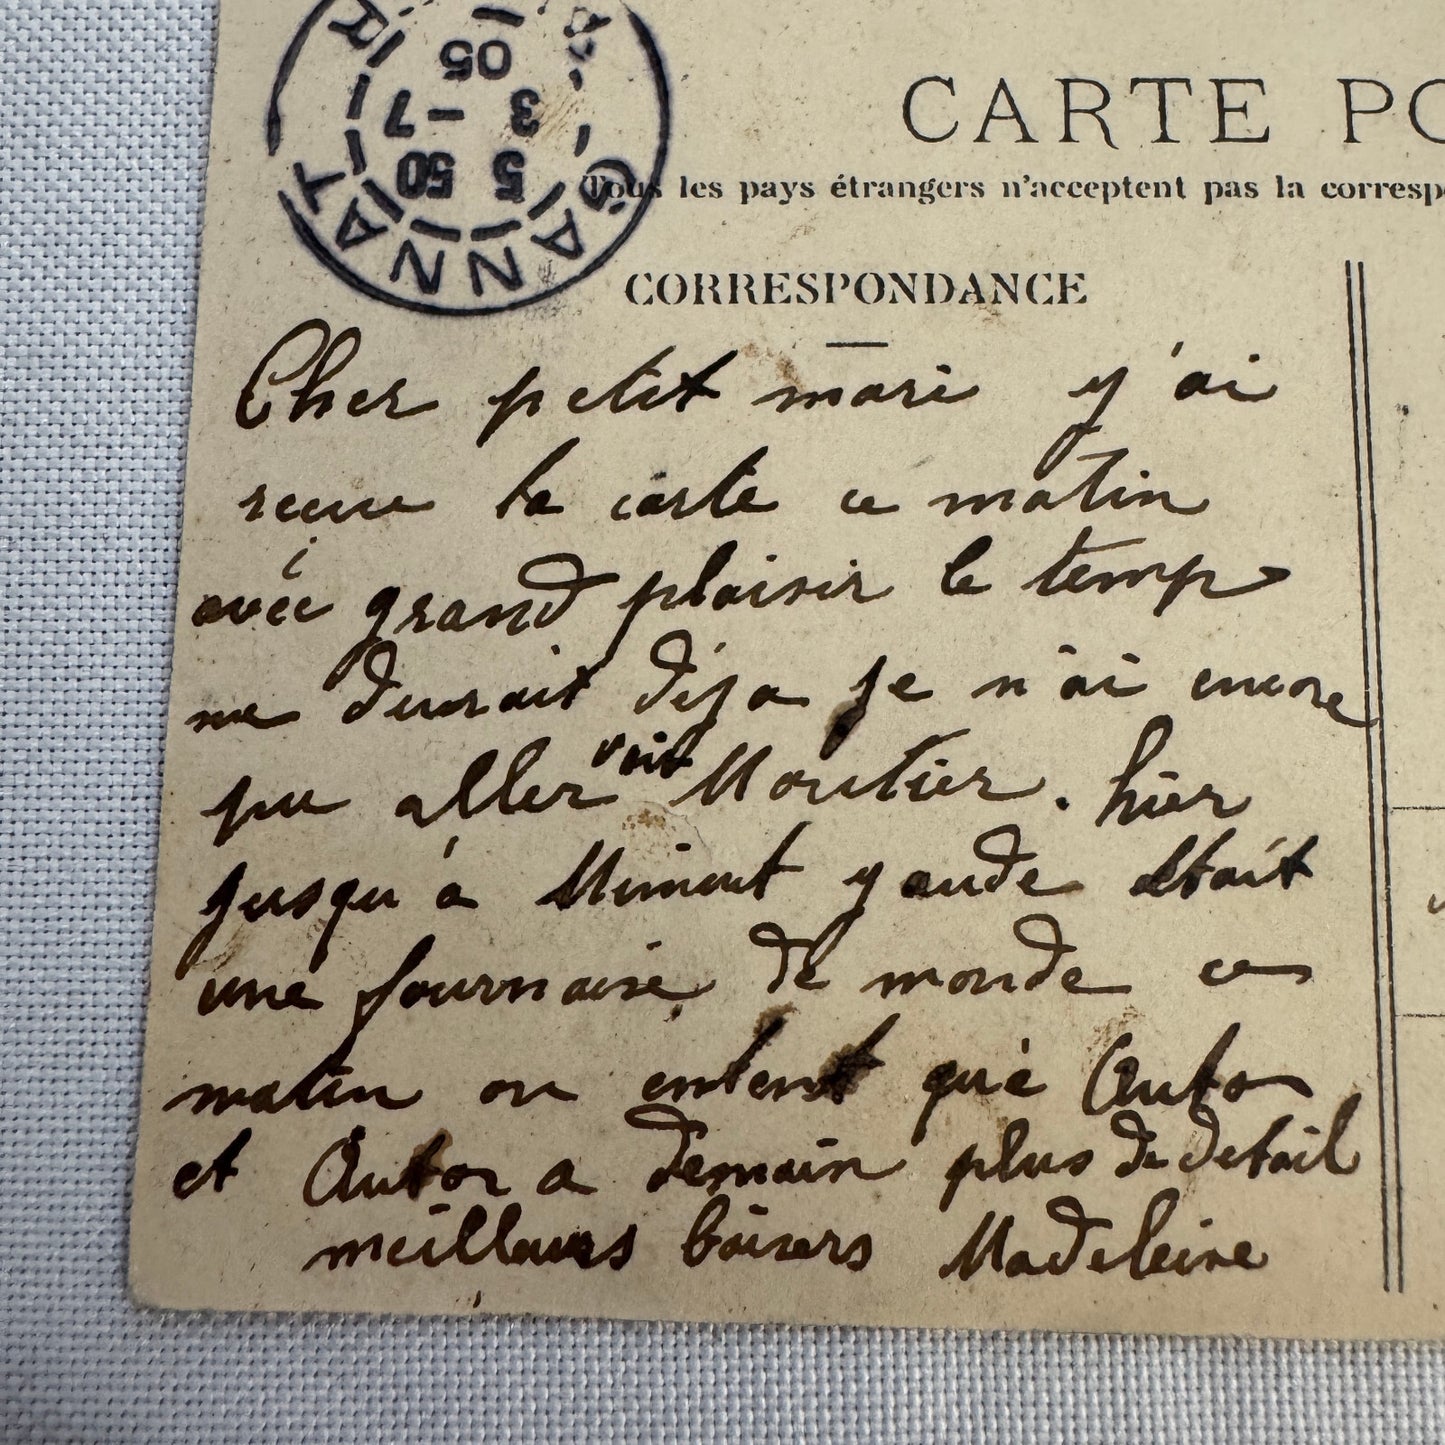 GANNAT
5 50
3 -7
05
CARTE PO
Tous les pays étrangers n'acceptent pas la corresp
CORRESPONDANCE
Cher petit mari y'ai
recue ta carte ce matin
avec grand plaisir le temp
me durait déja je n'ai encore
pu aller voir Moutier. hier
jusqu'à Minuit gande était
une fournaise de monde ce
matin on entent que Auto
et Auto a demain plus de detail
meilleurs baisers Madeleine